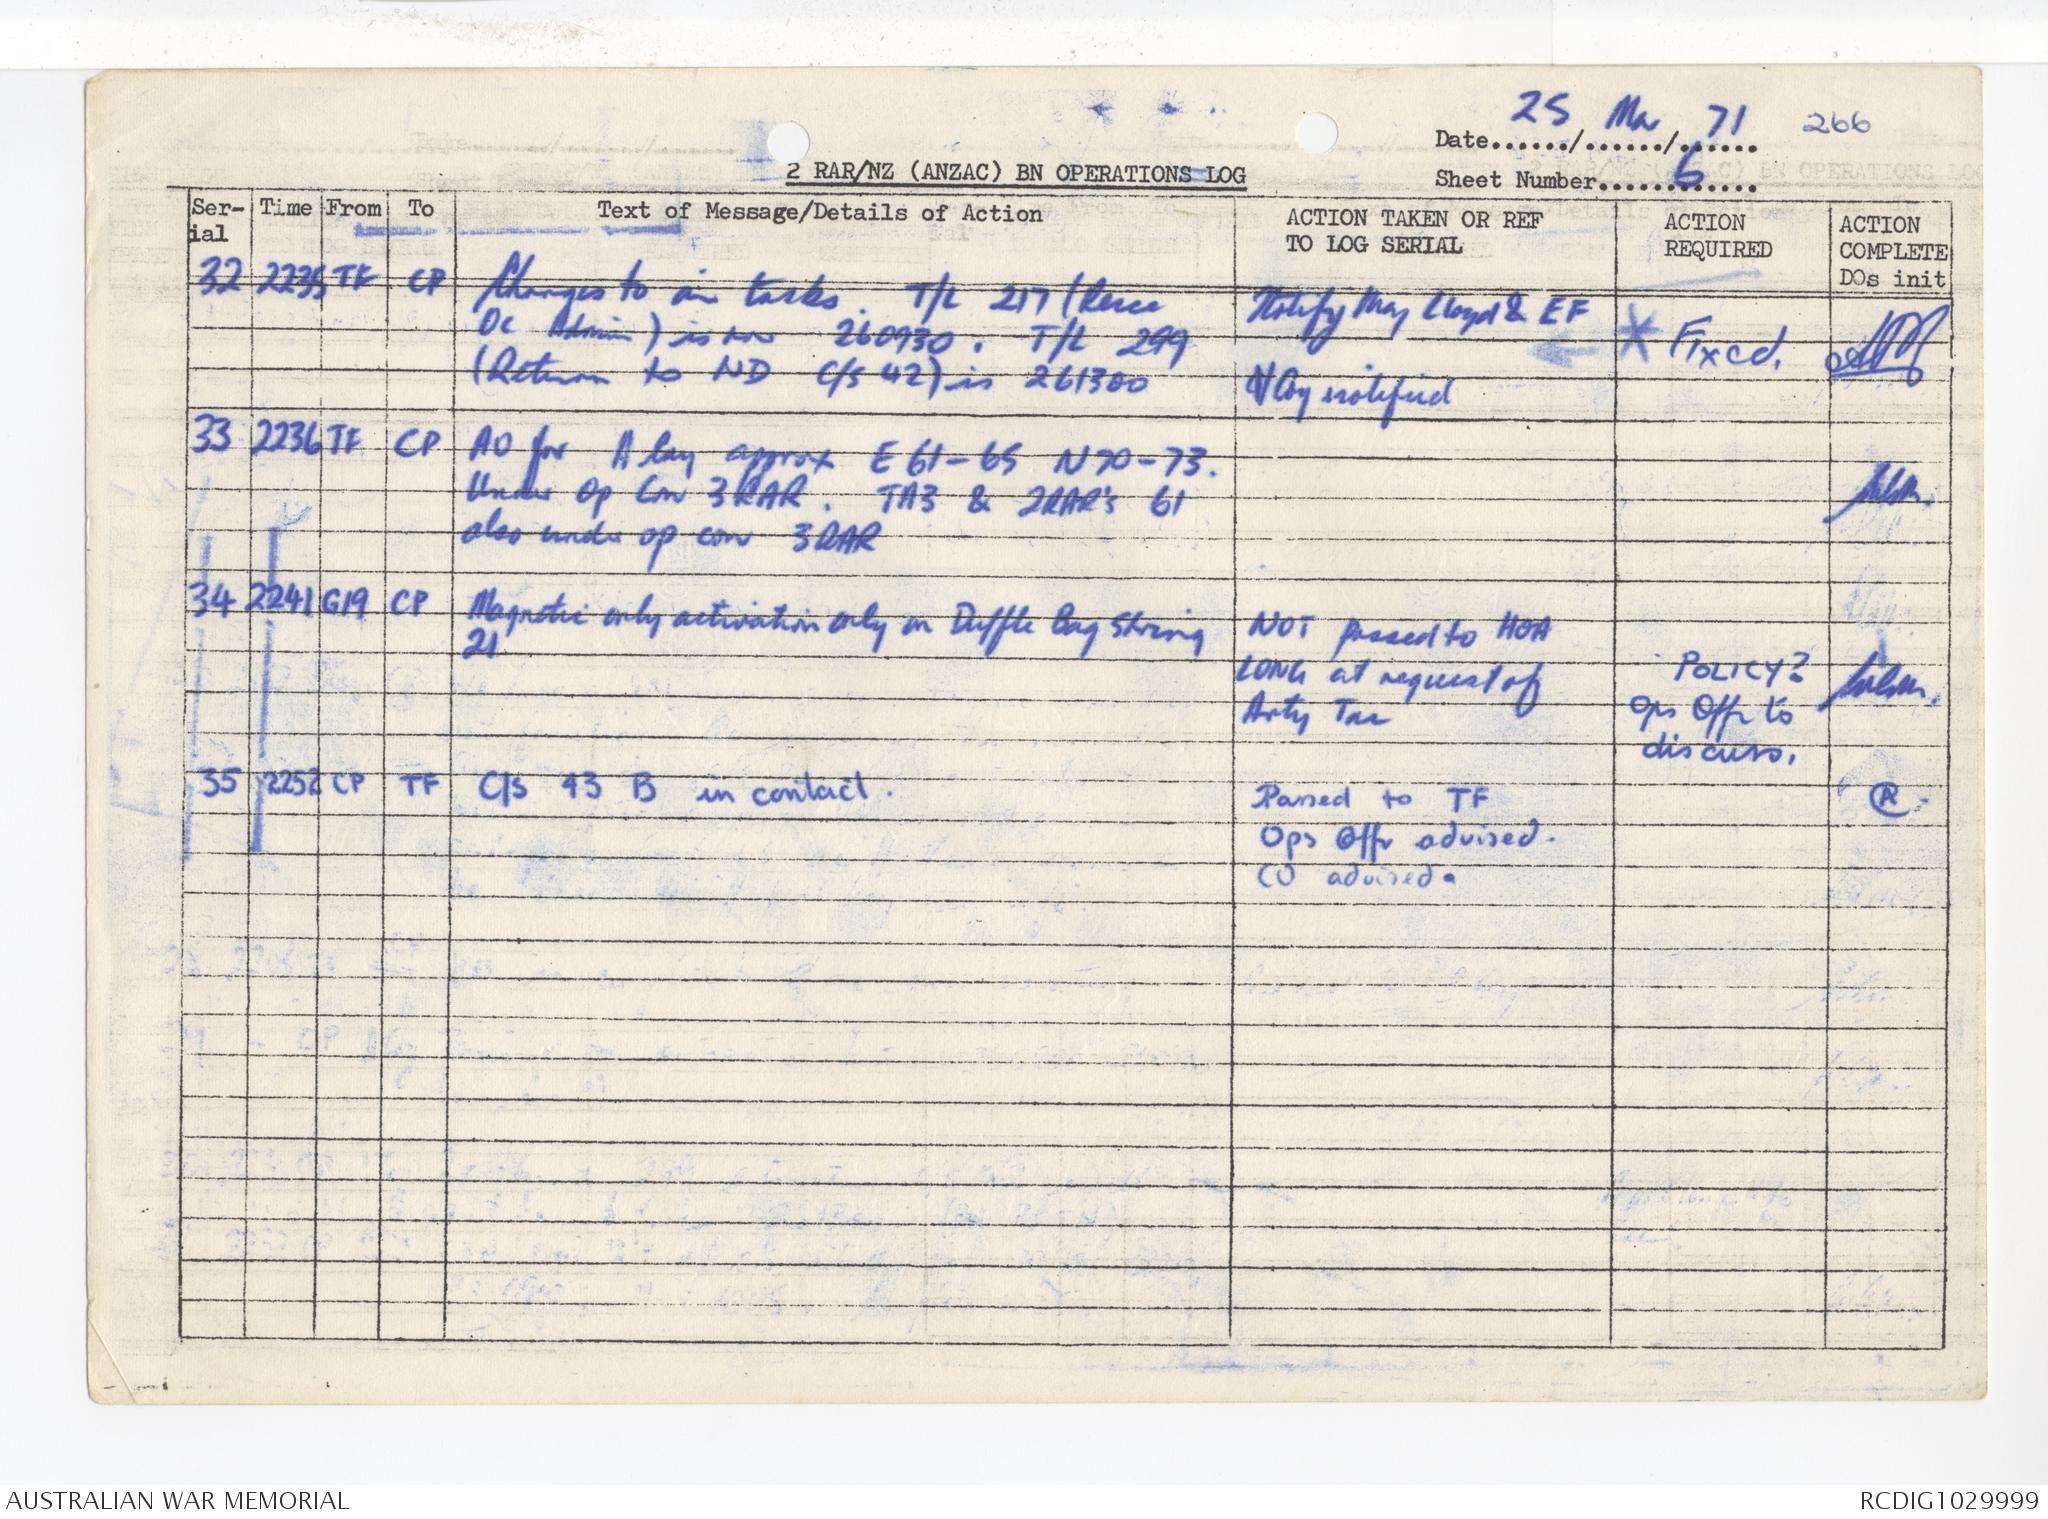 25 Mar 71 266
Date....../....../......
2 RAR/NZ (ANZAC) BN OPERATIONS LOG
Sheet Number 6
Ser-ial Time From To Text of Message/Details of Action ACTION TAKEN OR REF TO LOG SERIAL ACTION REQUIRED ACTION COMPLETE DOs init
32 2235 TF CP Changes to air tasks. T/L 217 (Recce
OC Admin) is now 260930. T/L 299
(Return to ND C/S 42) is 261300
Notify Maj Lloyd & EF
V Coy notified
Fixed.
33 2236 TF CP AO for A Coy approx E 61-65 N 70-73.
Under Op Con 3 RAR. TA3 & 2RAR's 61
also under op con 3RAR
34 2241 G19 CP Magnetic only activation only on Duffle Bag String
21
NOT passed to HOA
LONG at request of
Arty Tac
POLICY?
Ops Offr to
discuss.
35 2252 CP TF C/S 43 B in contact.
Passed to TF
Ops Offr advised.
CO advised.
AUSTRALIAN WAR MEMORIAL
RCDIG1029999